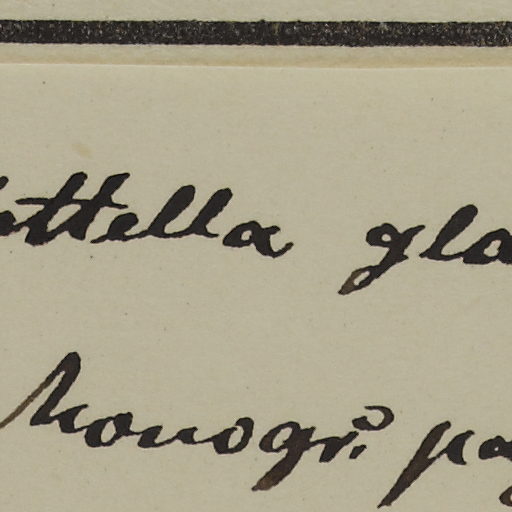 ttella gla
Monogr. pag